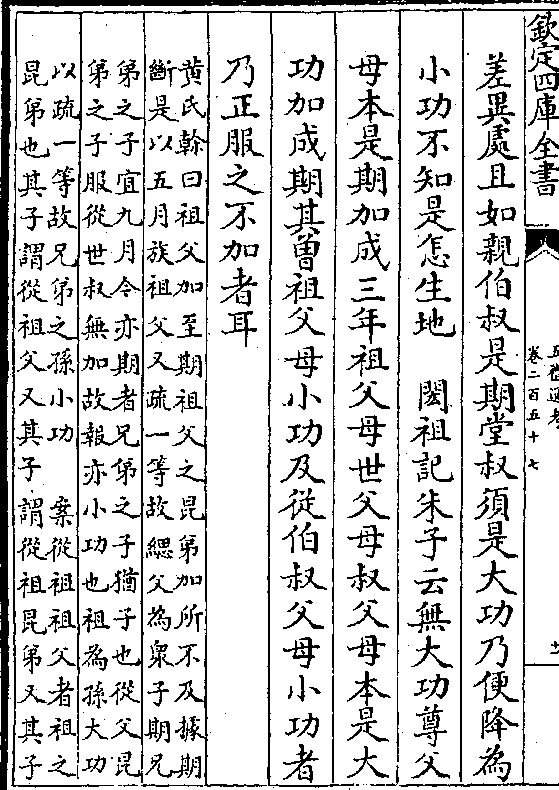 欽定四庫全書
五禮通考
卷二百五十七
差異處且如親伯叔是期堂叔須是大功乃便降為
小功不知是怎生地　閎祖記朱子云無大功尊父
母本是期加成三年祖父母世父母叔父母本是大
功加成期其曾祖父母小功及從伯叔父母小功者
乃正服之不加者耳
黄氏榦曰祖父加至期祖父之昆弟加所不及據期
斷是以五月族祖父又疏一等故緦父為衆子期兄
弟之子宜九月今亦期者兄弟之子猶子也從父昆
弟之子服從世叔無加故報亦小功也祖為孫大功
以疏一等故兄弟之孫小功　案從祖祖父者祖之
昆弟也其子謂從祖父又其子謂從祖昆弟又其子